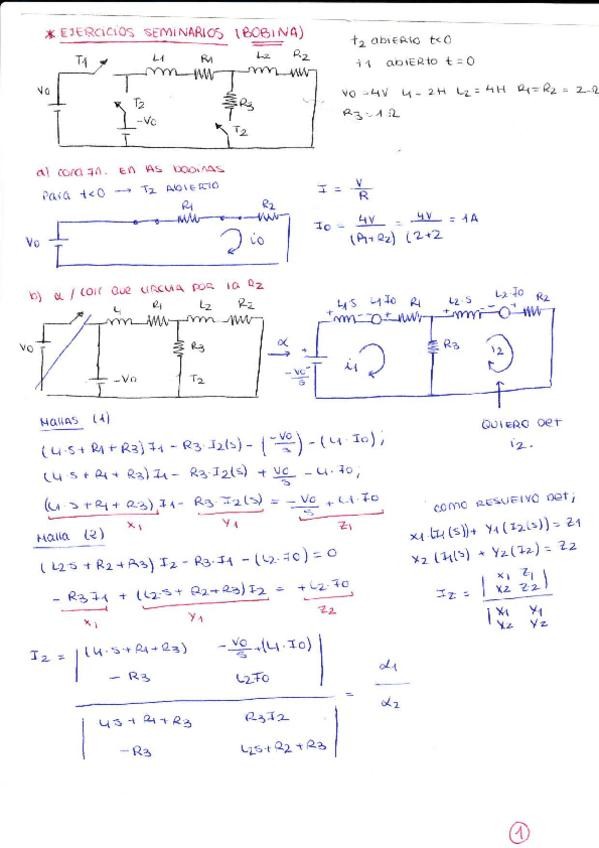 * EJERCICIOS SEMINARIOS (BOBINA)
T1 L1 R1 L2 R2
V0 T2 -V0 R3 T2
t2 abierto t<0
i1 abierto t=0
V0=4V L1=2H L2=4H R1=R2=2Ω
R3=1Ω
a) en las bobinas
para t<0 → T2 ABIERTO
R1 R2
V0 i0
I = V/R
I0 = 4V/(R1+R2) = 4V/(2+2) = 1A
b) α / corr que circula por la R2
L1 R1 L2 R2
V0 -V0 R3 T2
α →
+ L1S - L1I0 + R1 + L2·S - L2·I0 + R2
-V0/s i1 R3 i2
QUIERO Det i2.
MALLAS (1)
(L1·S+R1+R3)I1 - R3·I2(s) - (-V0/s) - (L1·I0);
(L1·S+R1+R3)I1 - R3·I2(s) + V0/s - L1·I0;
(L1·S+R1+R3)I1 - R3·I2(s) = -V0/s + L1·I0
X1 Y1 Z1
Malla (2)
(L2S+R2+R3)I2 - R3·I1 - (L2·I0) = 0
- R3I1 + (L2·S+R2+R3)I2 = +L2·I0
X1 Y1 Z2
COMO RESUELVO Det;
X1·(I1(s)) + Y1(I2(s)) = Z1
X2(I1(s) + Y2(I2) = Z2
I2 = | X1 Z1 |
| X2 Z2 |
| X1 Y1 |
| X2 Y2 |
I2 = | (L1·S+R1+R3) -V0/s+(L1·I0) |
| -R3 L2I0 |
| L1S+R1+R3 R3I2 |
| -R3 L2S+R2+R3 |
= α1/α2
1